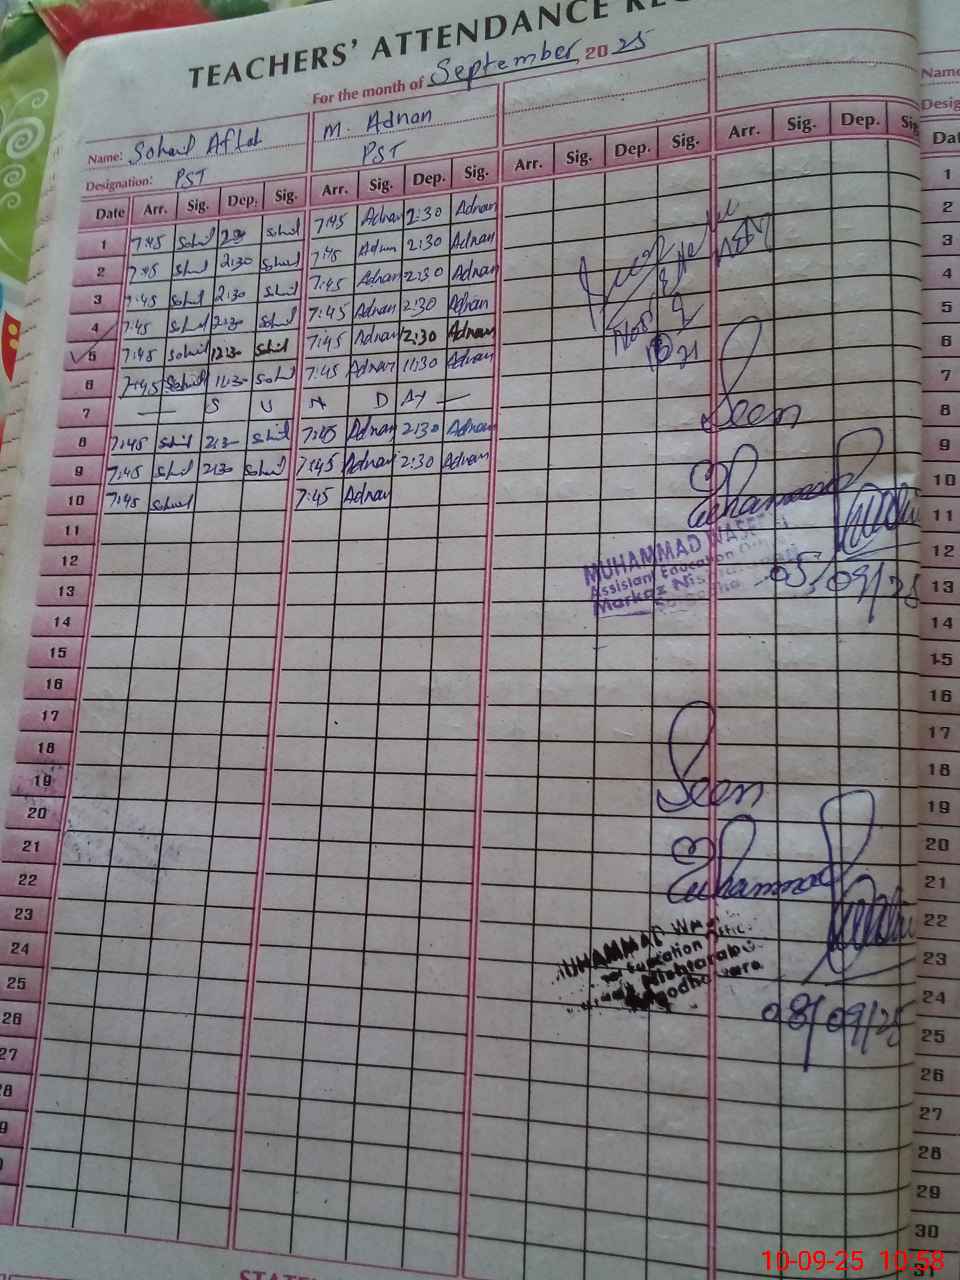 TEACHERS' ATTENDANCE
For the month of September 2025
Name: Sohail Aftab M. Adnan Name
Designation: PST PST
Date Arr. Sig. Dep. Sig. Arr. Sig. Dep. Sig. Arr. Sig. Dep. Sig. Arr. Sig. Dep.
1 7:45 Sohail 2:30 Sohail 7:45 Adnan 2:30 Adnan 1
2 7:45 Sohail 2:30 Sohail 7:45 Adnan 2:30 Adnan 2
3 7:45 Sohail 2:30 Sohail 7:45 Adnan 2:30 Adnan 3
4 7:45 Sohail 2:30 Sohail 7:45 Adnan 2:30 Adnan 4
5 7:45 Sohail 12:30 Sohail 7:45 Adnan 12:30 Adnan 5
6 7:45 Sohail 11:30 Sohail 7:45 Adnan 11:30 Adnan 6
7 — S U N D AY — 7
8 7:45 Sohail 2:30 Sohail 7:45 Adnan 2:30 Adnan 8
9 7:45 Sohail 2:30 Sohail 7:45 Adnan 2:30 Adnan 9
10 7:45 Sohail 7:45 Adnan 10
11 11
12 12
13 13
14 14
15 15
16 16
17 17
18 18
19 19
20 20
21 21
22 22
23 23
24 24
25 25
26 26
27 27
28
29
30
31
Seen
Muhammad
MUHAMMAD WASEEM
Assistant Education
Markaz
05/09/25
Seen
Muhammad
MUHAMMAD
Education
Nishtarabad
08/09/25
10-09-25 10:58